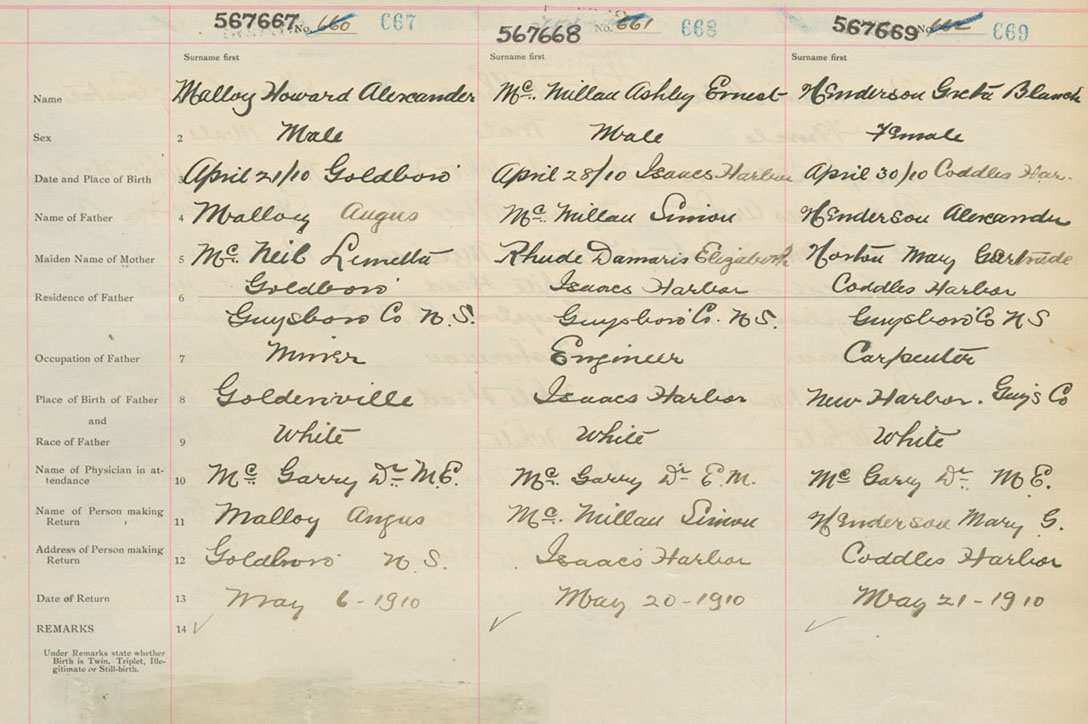 567667 No. 660 667 567668 No. 661 668 567669 No. 662 669
Surname first Surname first Surname first
Name Malloy Howard Alexander Mc. Millan Ashley Ernest Henderson Greta Blanch
Sex 2 Male Male Female
Date and Place of Birth 3 April 21/10 Goldboro April 28/10 Isaacs Harbor April 30/10 Coddles Har.
Name of Father 4 Malloy Angus Mc. Millan Simon Henderson Alexander
Maiden Name of Mother 5 Mc. Neil Lemetta Rhude Damaris Elizabeth Horton Mary Gertrude
Goldboro Isaacs Harbor Coddles Harbor
Residence of Father 6
Guysboro Co N.S. Guysboro Co. N.S. Guysboro Co N S
Occupation of Father 7 Miner Engineer Carpenter
Place of Birth of Father 8 Goldenville Isaacs Harbor New Harbor. Guys Co
and
Race of Father 9 White White White
Name of Physician in at-
tendance 10 Mc. Garry Dr M.E. Mc. Garry Dr E.M. Mc Garry Dr. M E.
Name of Person making
Return 11 Malloy Angus Mc. Millan Simon Henderson Mary G.
Address of Person making
Return 12 Goldboro N.S. Isaacs Harbor Coddles Harbor
Date of Return 13 May 6-1910 May 20-1910 May 21-1910
REMARKS 14
Under Remarks state whether
Birth is Twin, Triplet, Ille-
gitimate or Still-birth.